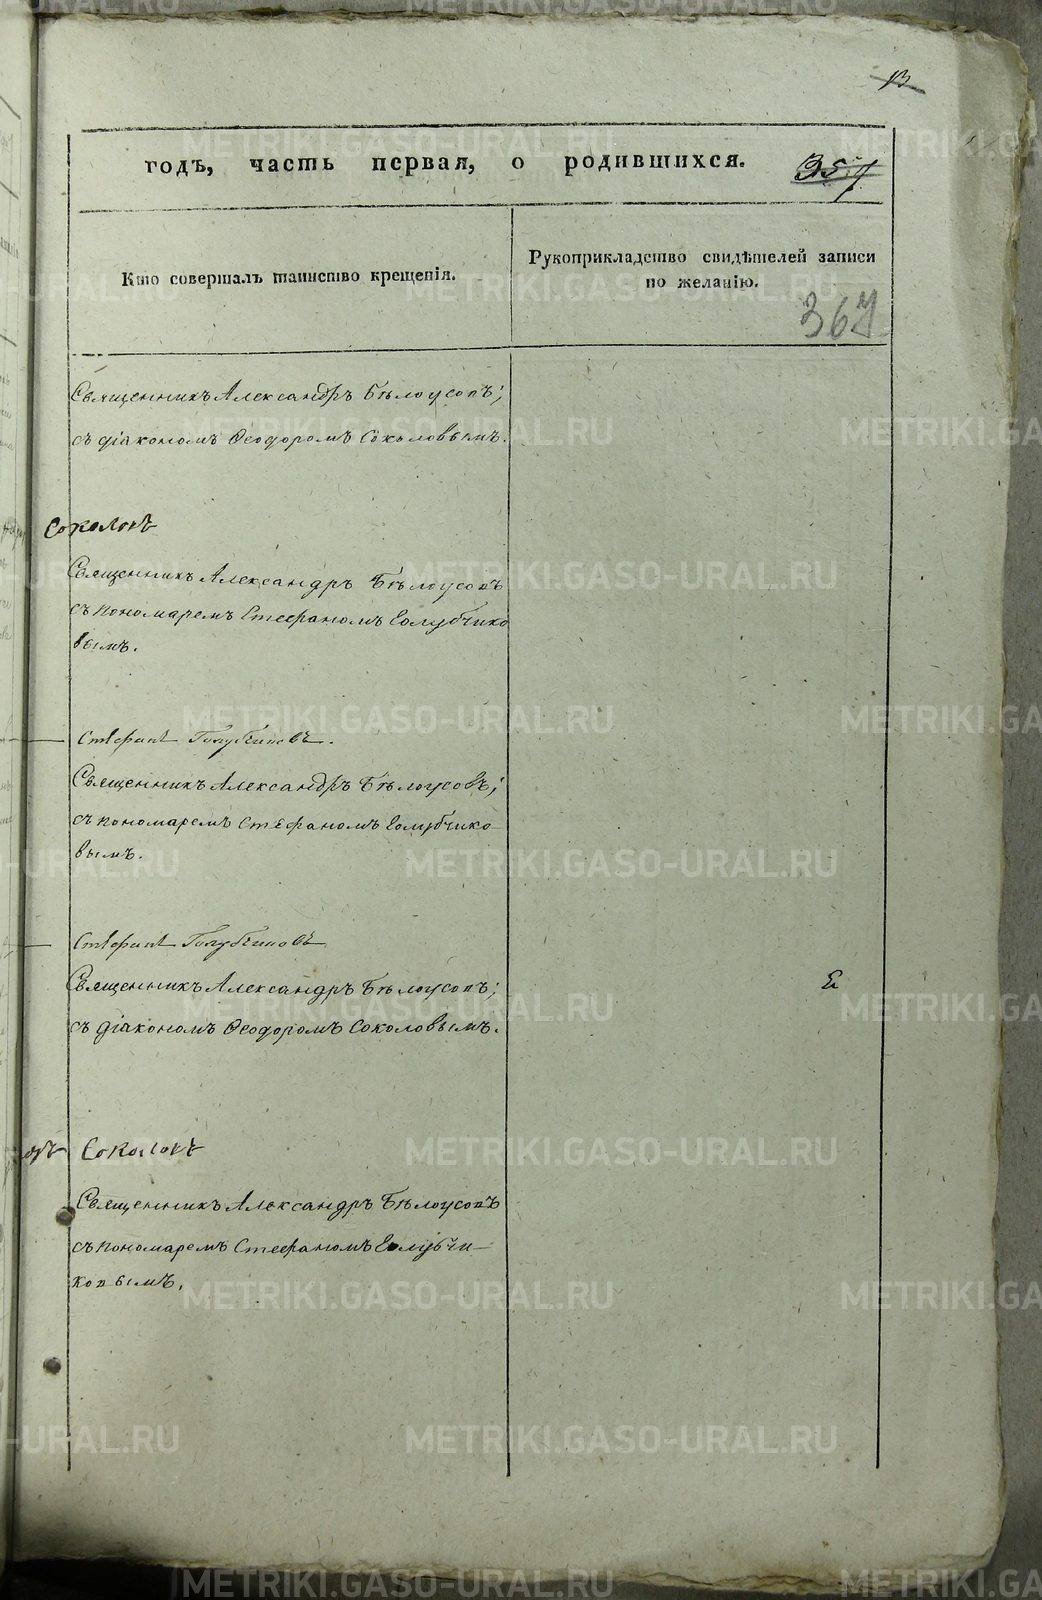 13
годъ, часть первая, о родившихся.
357
Кто совершалъ таинство крещенія.
Рукоприкладство свидѣтелей записи
по желанію.
367
Священникъ Александръ Бѣлоусовъ;
съ діакономъ Ѳеодоромъ Соколовымъ.
Соколовъ
Священникъ Александръ Бѣлоусовъ
съ пономаремъ Стефаномъ Голубчико
вымъ.
Стефанъ Голубчиковъ.
Священникъ Александръ Бѣлоусовъ;
съ пономаремъ Стефаномъ Голубчико
вымъ.
Стефанъ Голубчиковъ
Священникъ Александръ Бѣлоусовъ;
съ діакономъ Ѳеодоромъ Соколовымъ.
Соколовъ
Священникъ Александръ Бѣлоусовъ
съ пономаремъ Стефаномъ Голубчи
ковымъ.
METRIKI.GASO-URAL.RU